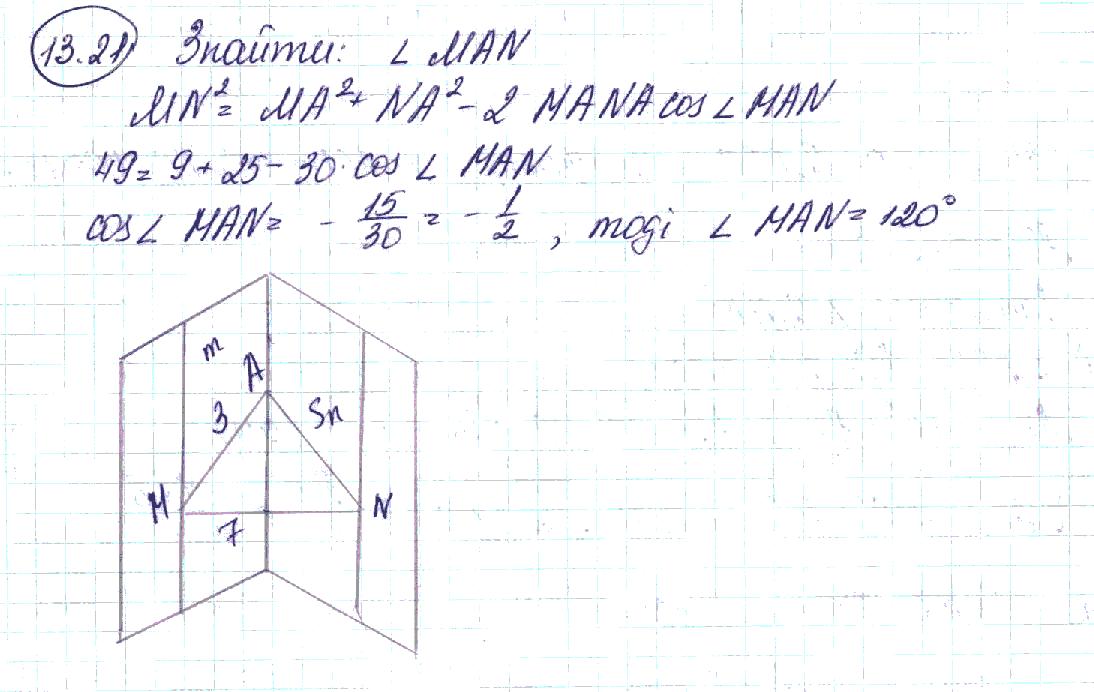 13.21 Знайти: ∠ MAN
MN² = MA² + NA² - 2 MANA cos ∠ MAN
49 = 9 + 25 - 30 · cos ∠ MAN
cos ∠ MAN = - 15/30 = - 1/2 , тоді ∠ MAN = 120°
m
A
3
5 n
M
N
7